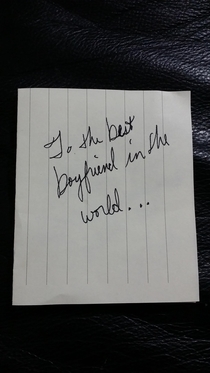 To the best
boyfriend in the
world...